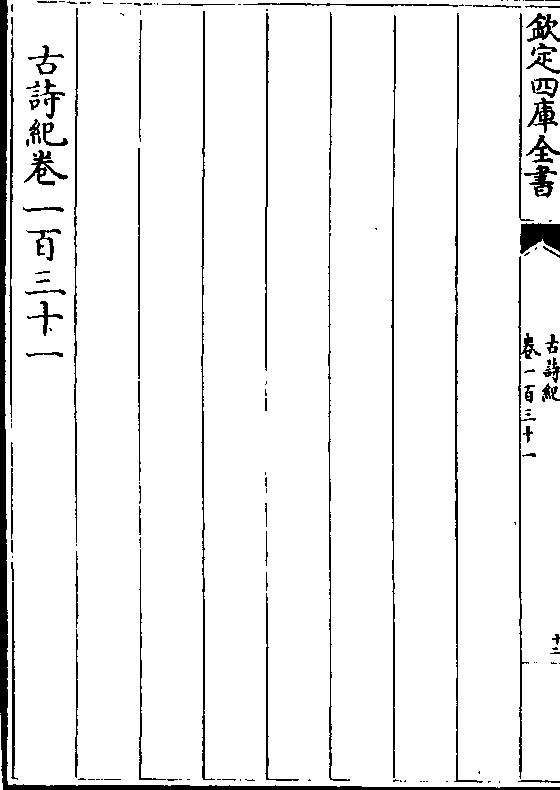 欽定四庫全書
古詩紀
卷一百三十一
十二
古詩紀卷一百三十一